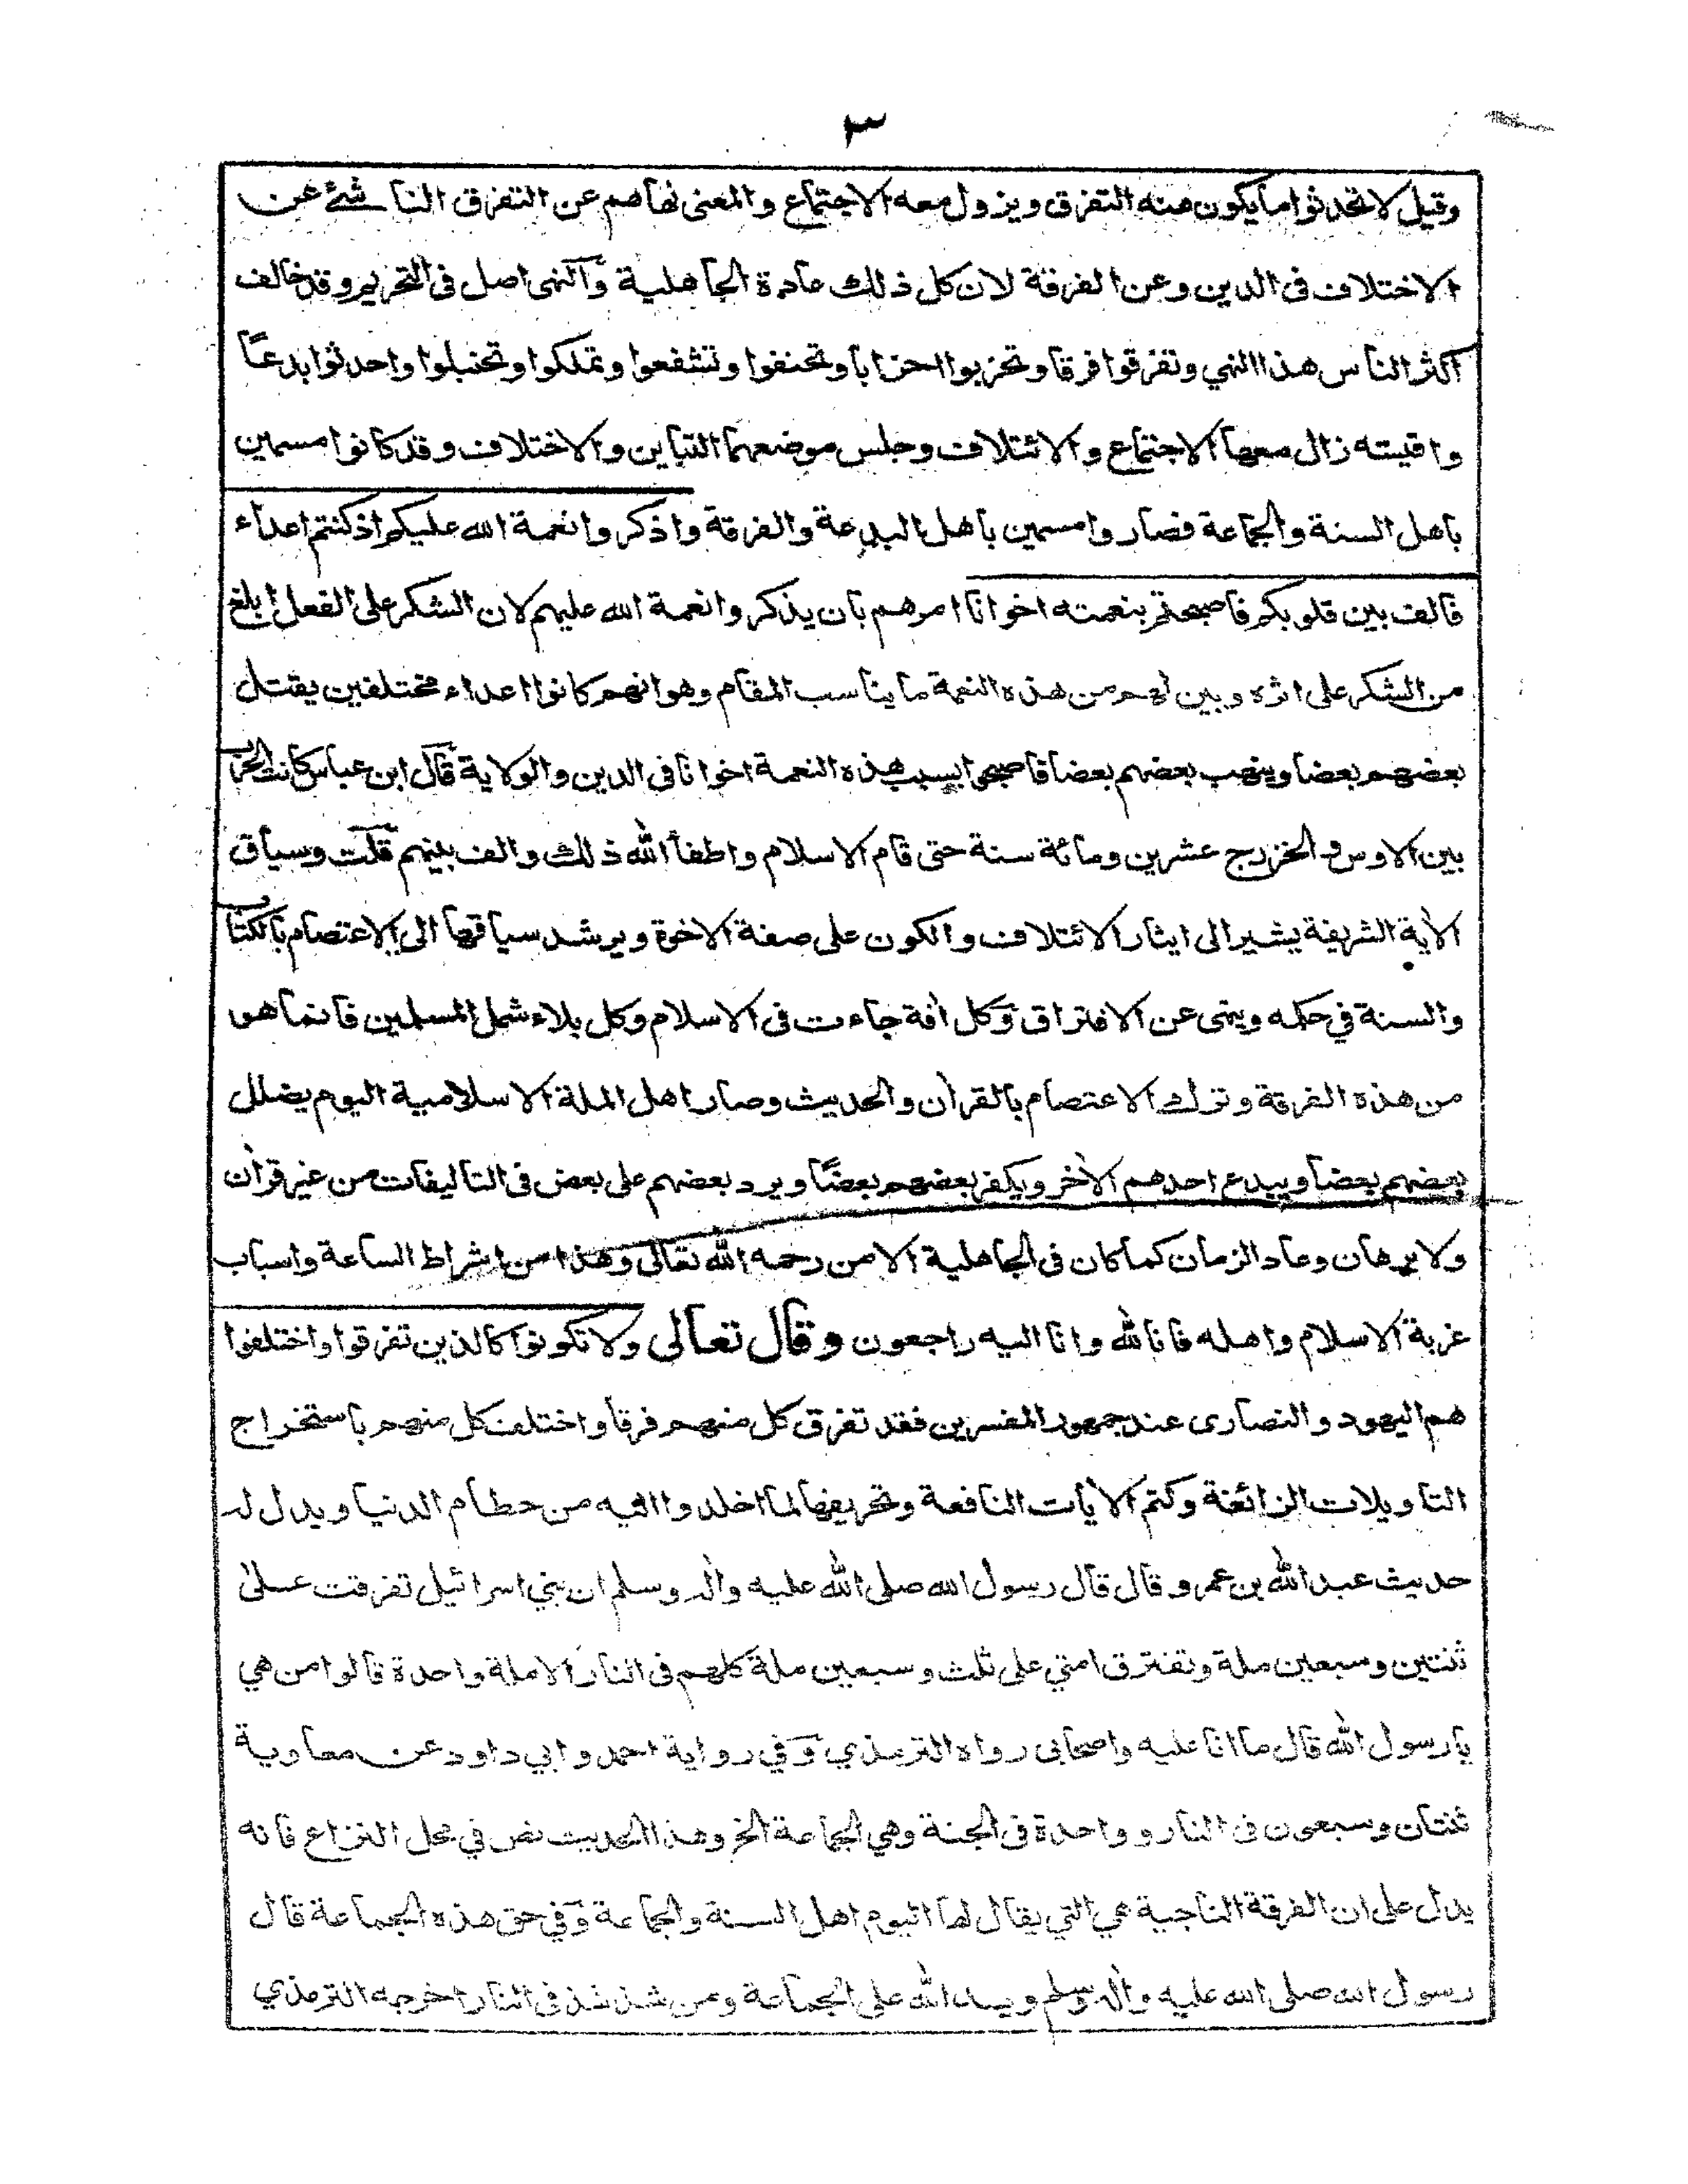 ٣
وقيل لا تحدثوا ما يكون منه التفرق ويزول معه الاجتماع والمعنى نهاهم عن التفرق الناشئ عن
الاختلاف في الدين وعن الفرقة لان كل ذلك عادة الجاهلية والنهي اصل في التحريم وقد خالف
اكثر الناس هذا النهي وتفرقوا فرقا وتحزبوا احزابا وتحنفوا وتشفعوا وتملكوا وتحنبلوا واحدثوا بدعًا
واقيسته زال معها الاجتماع والائتلاف وجلس موضعهما التباين والاختلاف وقد كانوا مسمين
باهل السنة والجماعة فصاروا مسمين باهل البدعة والفرقة واذكروا نعمة الله عليكم اذ كنتم اعداء
فالف بين قلوبكم فاصبحتم بنعمته اخوانا امرهم بان يذكروا نعمة الله عليهم لان الشكر على الفعل ابلغ
من الشكر على اثره وبين لهم من هذه النعمة ما يناسب المقام وهو انهم كانوا اعداء مختلفين يقتل
بعضهم بعضا وينهب بعضهم بعضا فاصبحوا بسبب هذه النعمة اخوانا في الدين والولاية قال ابن عباس كانت الحرب
بين الاوس والخزرج عشرين ومائة سنة حتى قام الاسلام واطفأ الله ذلك والف بينهم قلت وسياق
الأية الشريفة يشير الى ايثار الائتلاف والكون على صفة الاخوة ويرشد سياقها الى الاعتصام بالكتاب
والسنة في حكمه وينهى عن الافتراق وكل أفة جاءت في الاسلام وكل بلاء شمل المسلمين فانما هو
من هذه الفرقة وترك الاعتصام بالقرأن والحديث وصار اهل الملة الاسلامية اليوم يضلل
بعضهم بعضا ويبدع احدهم الأخر ويكفر بعضهم بعضًا ويرد بعضهم على بعض في التاليفات من غير قرأن
ولا برهان وعاد الزمان كما كان في الجاهلية الا من رحمه الله تعالى وهذا من اشراط الساعة واسباب
غربة الاسلام واهله فانا لله وانا اليه راجعون وقال تعالى ولا تكونوا كالذين تفرقوا واختلفوا
هم اليهود والنصارى عند جمهور المفسرين فقد تفرق كل منهم فرقا واختلف كل منهم باستخراج
التاويلات الزائغة وكتم الأيات النافعة وتحريفها لما اخلدوا اليه من حطام الدنيا ويدل له
حديث عبد الله بن عمرو قال قال رسول الله صلى الله عليه وأله وسلم ان بني اسرائيل تفرقت على
ثنتين وسبعين ملة وتفترق امتي على ثلث وسبعين ملة كلهم في النار الا ملة واحدة قالوا من هي
يا رسول الله قال ما انا عليه واصحابى رواه الترمذي وفي رواية احمد وابي داود عن معاوية
ثنتان وسبعون في النار وواحدة في الجنة وهي الجماعة الخ وهذا الحديث نص في محل النزاع فانه
يدل على ان الفرقة الناجية هي التي يقال لها اليوم اهل السنة والجماعة وفي حق هذه الجماعة قال
رسول الله صلى الله عليه وأله وسلم ويد الله على الجماعة ومن شذ شذ في النار اخرجه الترمذي